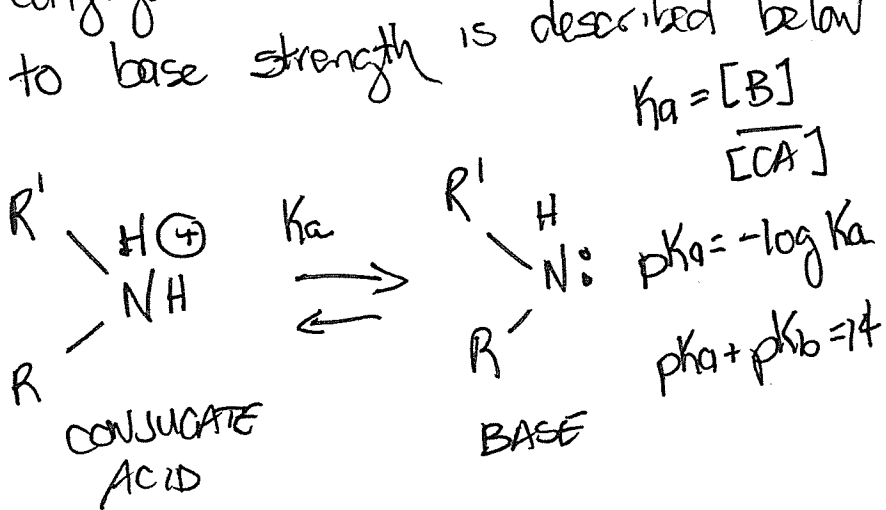 to base strength is described below
Ka = [B]
[CA]
R' H + Ka R' H
NH N: pKa = -log Ka
R R pKa + pKb = 14
CONJUGATE BASE
ACID